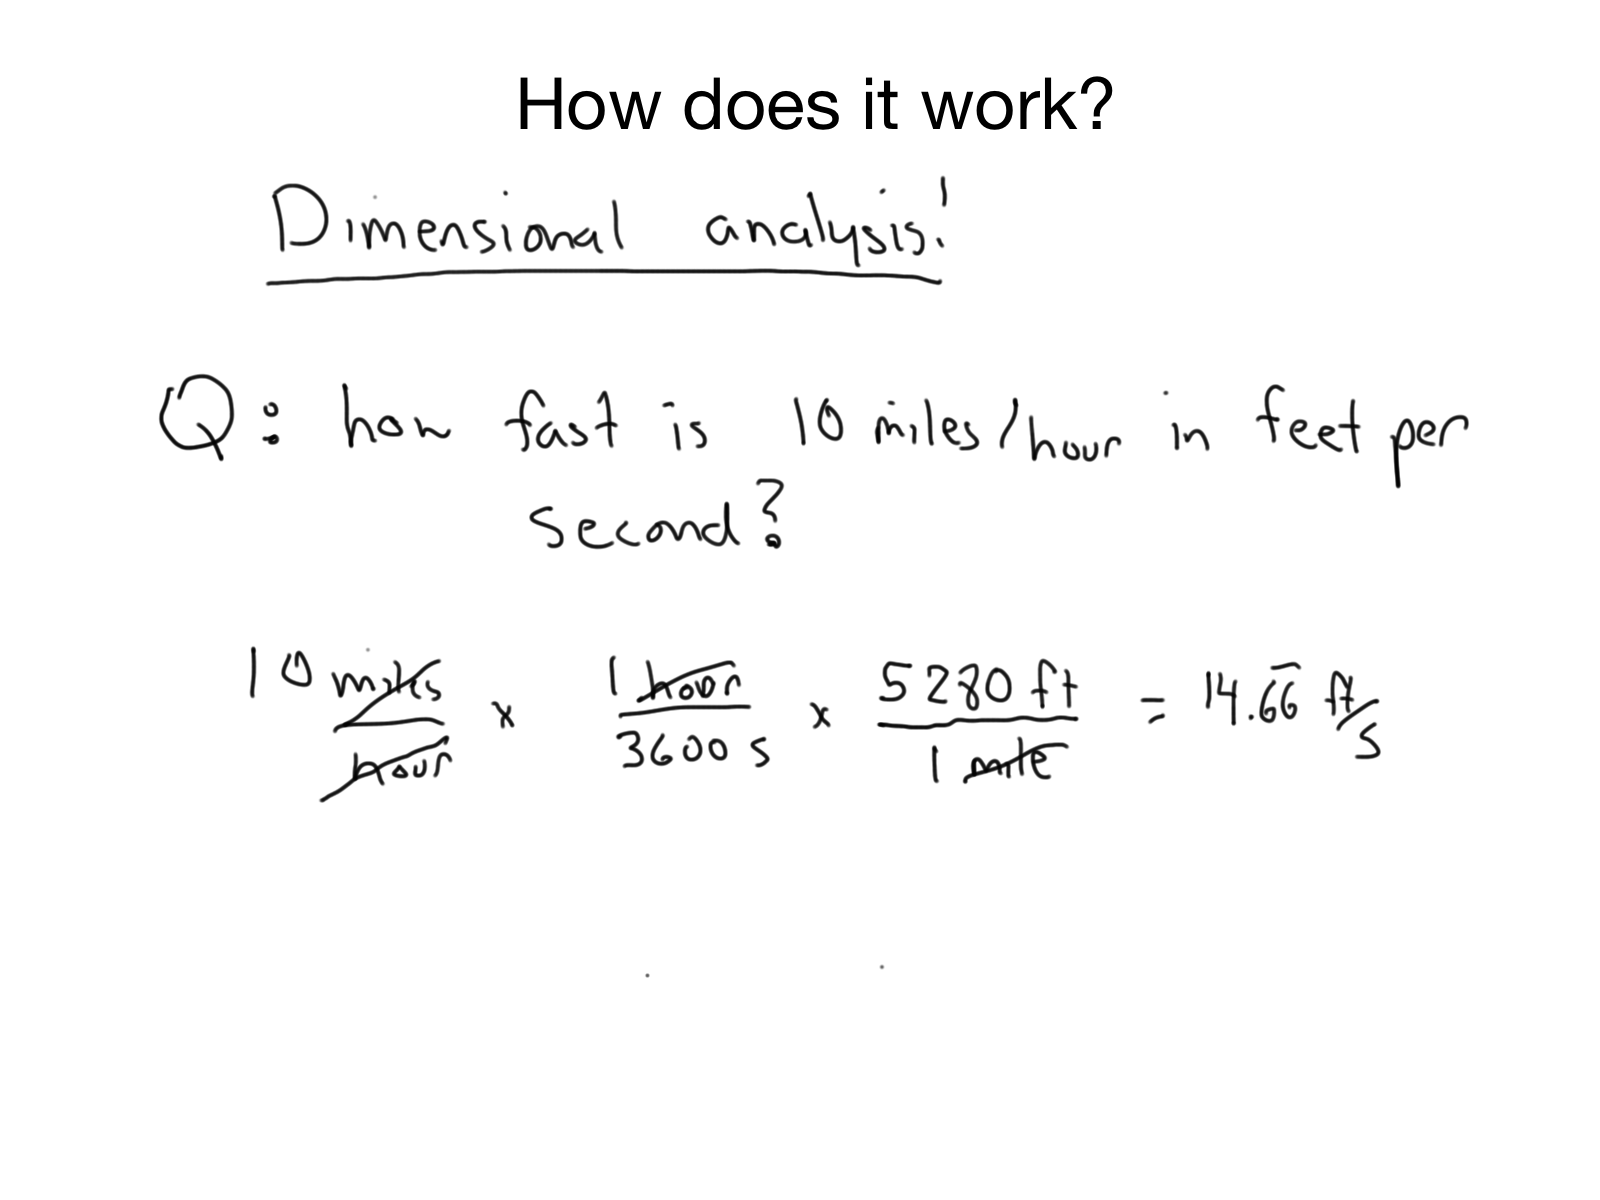 How does it work?
Dimensional analysis!
Q: how fast is 10 miles/hour in feet per
second?
10 miles/hour x 1 hour/3600 s x 5280 ft/1 mile = 14.66̅ ft/s